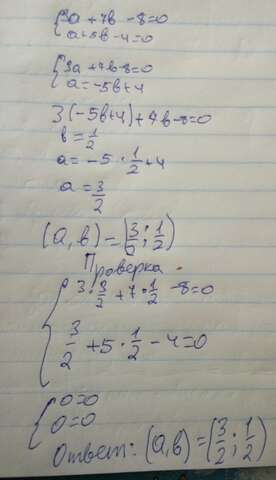 {3a + 7b - 8 = 0
a + 5b - 4 = 0
{3a + 7b - 8 = 0
a = -5b + 4
3(-5b + 4) + 7b - 8 = 0
b = 1/2
a = -5 · 1/2 + 4
a = 3/2
(a, b) = (3/2 ; 1/2)
Проверка
{3 · 3/2 + 7 · 1/2 - 8 = 0
3/2 + 5 · 1/2 - 4 = 0
{0 = 0
0 = 0
Ответ: (a, b) = (3/2 ; 1/2)